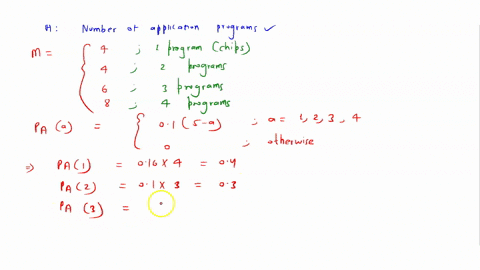 A: Number of application programs ✓
M = { 4 ; 1 program (chips)
4 ; 2 programs
6 ; 3 programs
8 ; 4 programs
PA (a) = { 0.1 (5-a) ; a = 1, 2, 3, 4
0 ; otherwise
⇒ PA (1) = 0.10 × 4 = 0.4
PA (2) = 0.1 × 3 = 0.3
PA (3) =